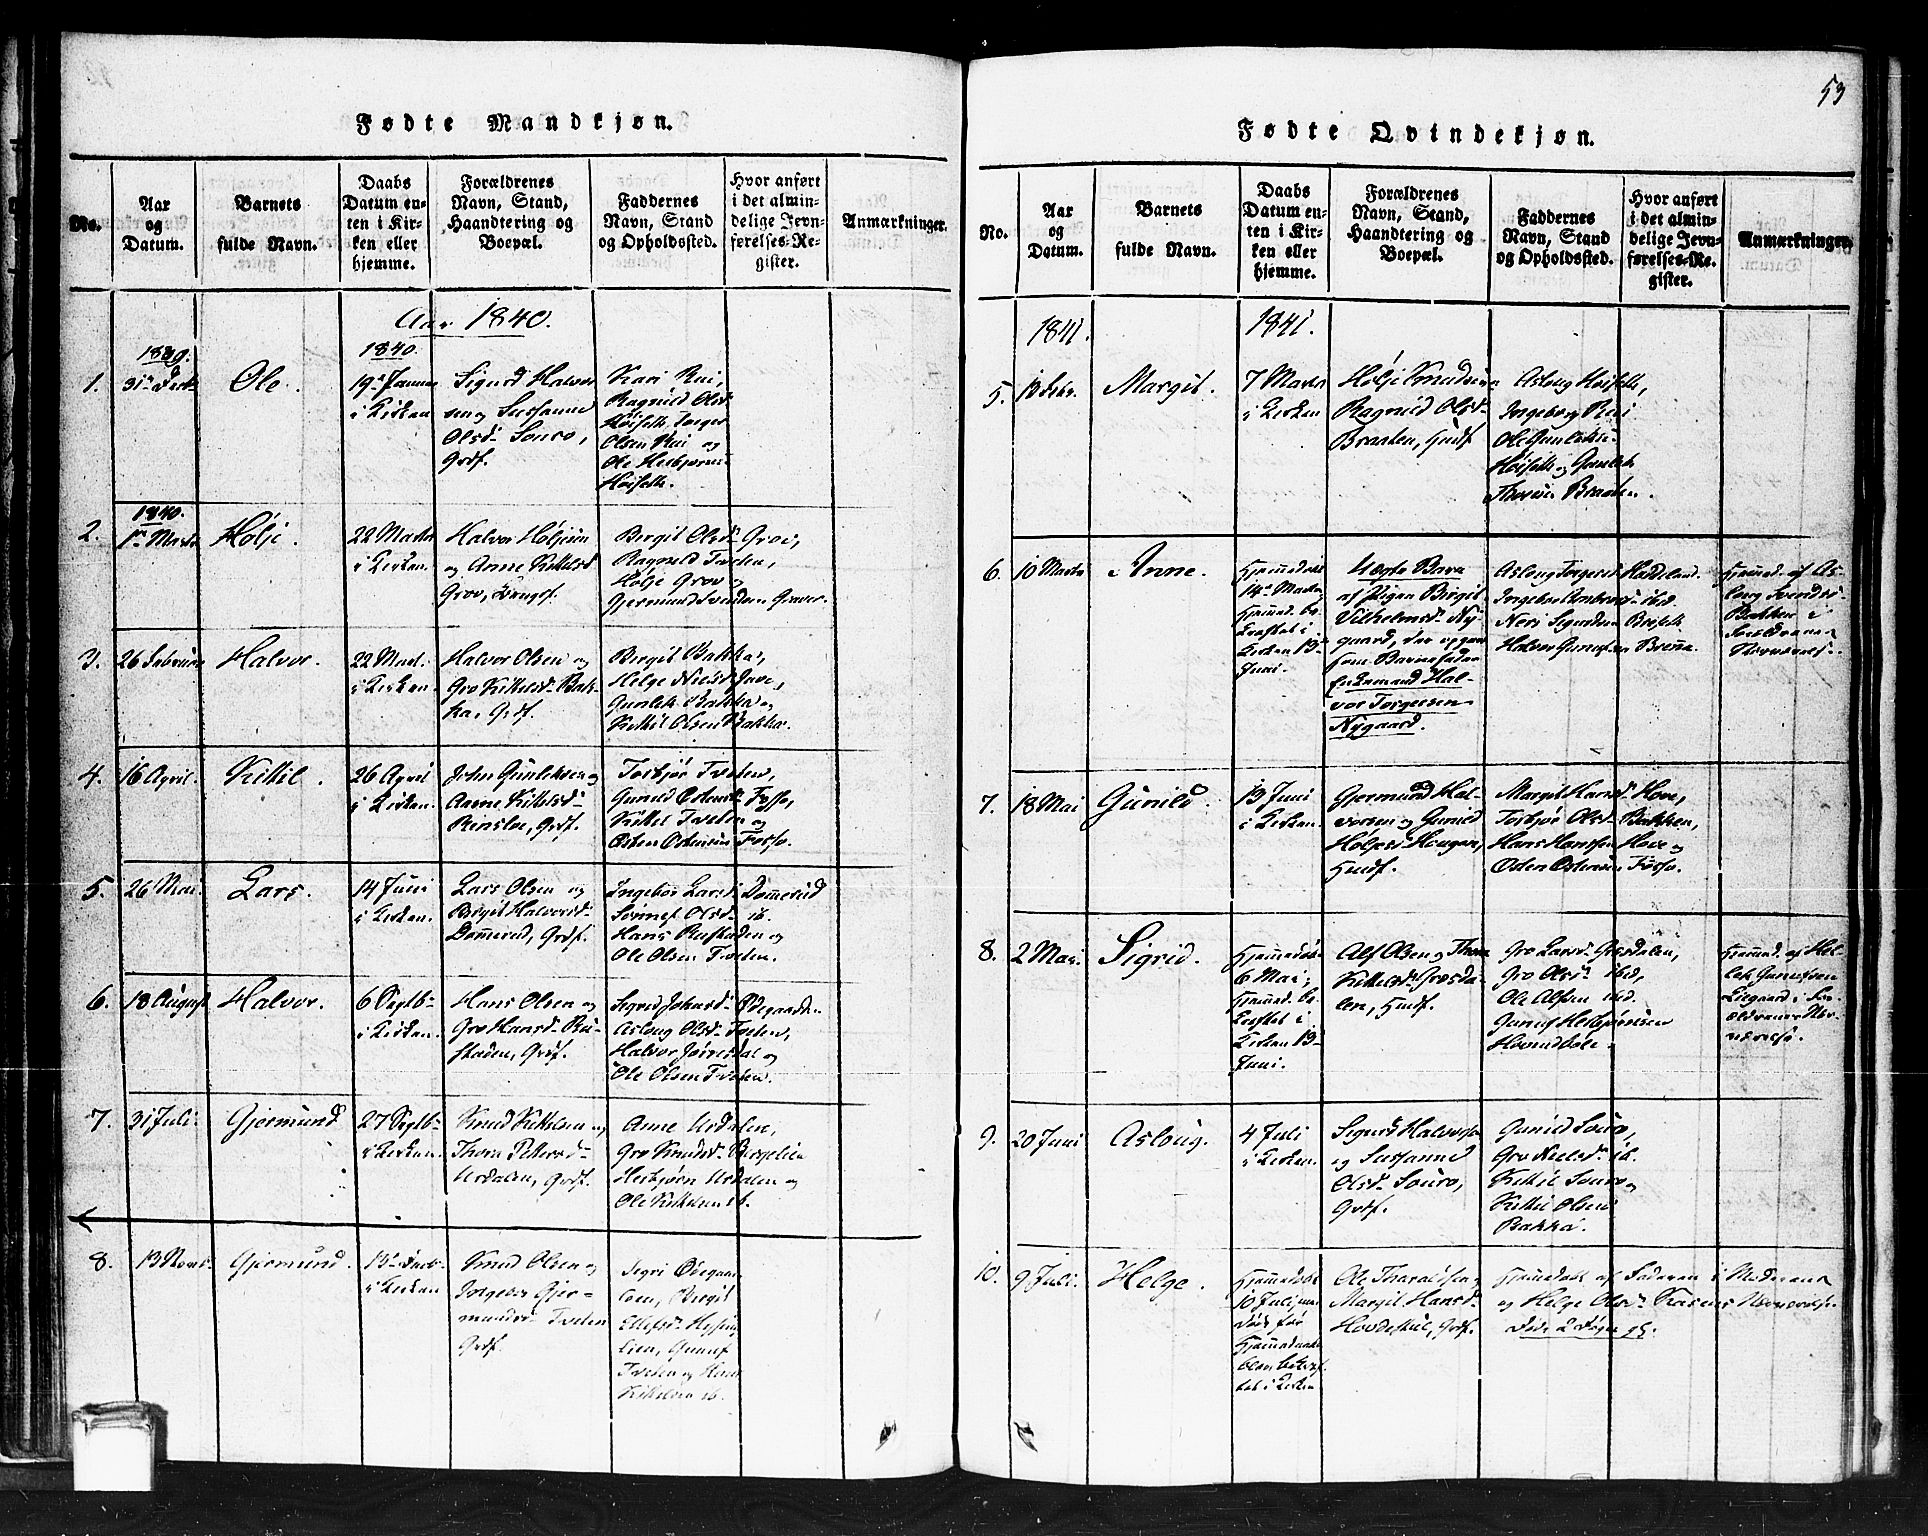 Fødte Mandkjøn.
No.
Aar
og
Datum.
Barnets
fulde Navn.
Daabs
Datum en-
ten i Kir-
ken eller
hjemme.
Forældrenes
Navn, Stand,
Haandtering og
Boepæl.
Faddernes
Navn, Stand
og Opholdssted.
Hvor anført
i det almin-
delige Jevn-
førelses-Re-
gister.
Anmærkninger.
Aar 1840.
1839.
1840.
1.
Ole.
i Kirken
Sigurd Halvor
sen og Susanne
Olsd. Souro,
Grdf.
Kari Rui,
Ragnild Olsd.
Høiseth, Torger
Olsen Rui og
Ole Herbjørns.
Høiseth.
1840.
2.
1ste Marts
Hølje.
22 Marts
i Kirken.
Halvor Høljesen
og Anne Kittelsd
Grov,
Birgit Olsd. Grov,
Ragnild Tveten,
Hølje Grov og
Gjermund Svendsen Graver.
3.
26 Februar
Halvor.
22 Mart.
i Kirken.
Halvor Olsen og
Gro Kittelsd. Bak-
ka, Grdf.
Birgit Bakka,
Helge Nielsd.
Gunlek Bakka og
Kittil Olsen Bakka.
4.
16 April.
Kittil.
26 April
i Kirken.
John Gunleksen og
Anne Kittelsd.
Grdf.
Torbjør Tveten,
Gunild Ostensd. Fosso,
Kittel Tveten og
Osten Ostensen Fosso.
5.
26 Mai.
Lars.
14 Juni
i Kirken.
Lars Olsen og
Birgit Halvorsd.
Dommerud, Grdf.
Ingebor Larsd. Dommerud
Olsd. ib.
Hans Rustaden og
Ole Olsen Tveten.
6.
18 August
Halvor.
6 Septb.
i Kirken.
Hans Olsen og
Gro Hansd. Ru-
staden, Grdf.
Sigrid Johnsd. Ødegaarden
Asloug Olsd. Tveten,
Halvor Jørnsdal og
Ole Olsen Tveten.
7.
31 Juli.
Gjermund
27 Septb.
i Kirken.
Knud Kittelsen og
Thora Pettersd.
Urdalen, Grdf.
Anne Urdalen,
Gro Knudsd. Bergelien
Herbjørn Urdalen og
Ole Kittelsen ib.
8.
13 Novb.
Gjermund.
i Kirken
Knud Olsen og
Ingebor Gjer-
mundsd. Tveten
Grdf.
Sigri Ødegaar
den, Birgit
Ellefsd.
lien, Gunuf
Tveten og
Kittelsen ib.
53
Fødte Qvindekjøn.
No.
Aar
og
Datum.
Barnets
fulde Navn.
Daabs
Datum en-
ten i Kir-
ken eller
hjemme.
Forældrenes
Navn, Stand,
Haandtering og
Boepæl.
Faddernes
Navn, Stand
og Opholdssted.
Hvor anført
i det almin-
delige Jevn-
førelses-Re-
gister.
Anmærkninger.
1841.
1841.
5.
Margit.
7 Marts
i Kirken
Hølje Knudsen
Ragnild Olsd.
Braaten, Husf.
Asloug Høiseth,
Ingeborg Rui
Ole Gunleks.
Høiseth og Gunlek
Braaten.
6.
10 Marts
Anne.
Hjemmedøbt
14de Marts
Hjemmed. be-
kræftet i
Kirken 13
Juni.
Uægte Barn
af Pigen Birgit
Vilhelmsd. Ny-
gaard, der opgav
som Barnefader
Enkemand Hal-
vor Torgersen
Nygaard.
Aslaug Torgersd.
ibid.
Halvor Gunufsen
Hjemmed. af As-
loug Svendsd.
Bakken i
Forældrenes
Nærværelse.
7.
18 Mai
Gunild.
13 Juni
i Kirken.
Gjermund Hal-
vorsen og Gunild
Høljesd. Haugen,
Husf.
Margit Hansd. Hove,
Torbjør Olsd. Bakken,
Hans Hansen Hove og
Osten Ostensen Fosso.
8.
2 Mai.
Sigrid.
Hjemmedøbt
6 Mai,
Hjemmed. be-
kræftet i
Kirken 13
Juni.
Alf Olsen og Thora
Kittelsd. Grøsda-
len, Husf.
Gro Larsd. Grøsdalen,
Gro Olsd. ibid,
Ole Alfsen ibid.
Gunuf Herbjørnsen
Hjemmed. af
Gunufsen
i For-
ældrenes Nær-
værelse.
9.
20 Juni
Asloug.
4 Juli
i Kirken.
Sigurd Halvorsen
og Susanne
Olsd. Souro,
Grdf.
Gunild Souro,
Gro Nielsd. ib.
Kittil Souro og
Kittil Olsen
Bakka.
10.
9 Juli.
Helge.
Hjemmedøbt
10 Juli, men
døde før
Hjemmedaaben
blev bekræf-
tet i Kirken
Ole Tharaldsen og
Margit Hansd.
Grdf.
Hjemmedøbt af Faderen i Moderens
og Helge Olsd. Nærværelse.
Døde 2 Døgn gl.